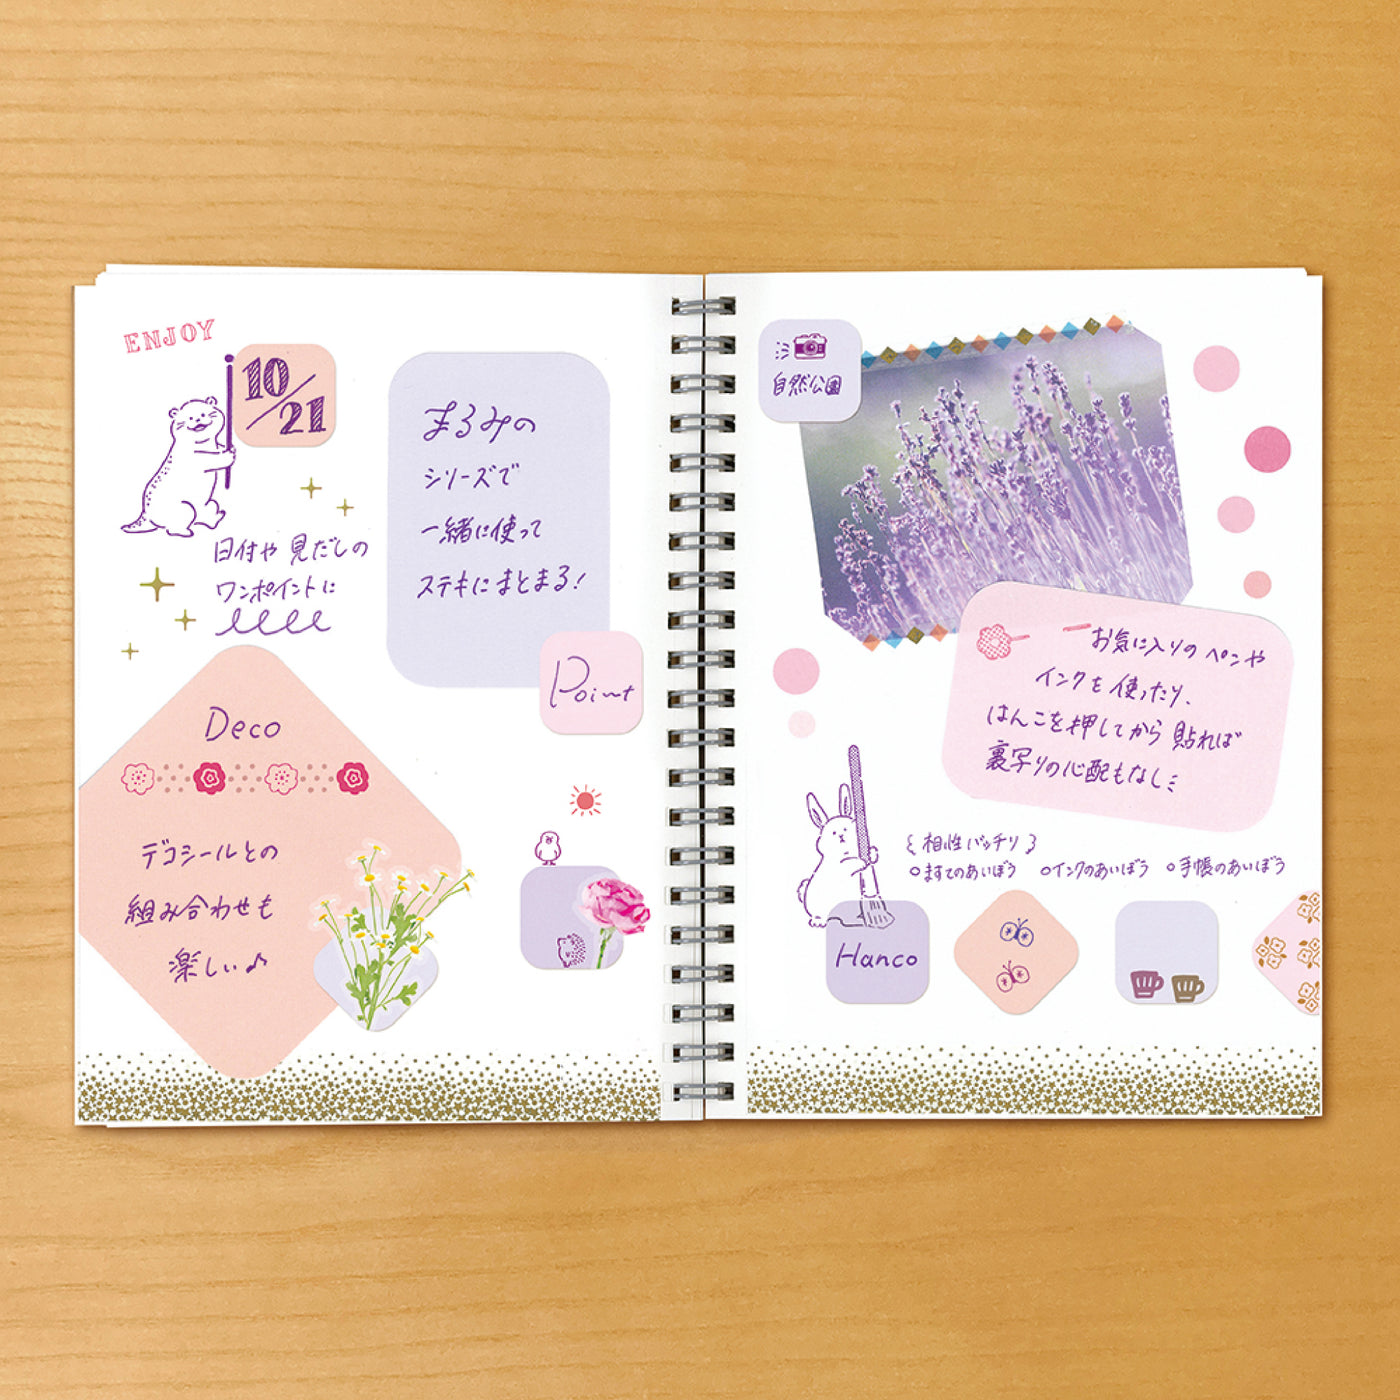 ENJOY
10/21
日付や 見だしの
ワンポイントに
まるみの
シリーズで
一緒に使って
ステキにまとまる!
Point
Deco
デコシールとの
組み合わせも
楽しい♪
自然公園
お気に入りの ペンや
インクを 使ったり、
はんこを押してから 貼れば
裏写りの心配もなし
{ 相性バッチリ }
○ますてのあいぼう ○インクのあいぼう ○手帳のあいぼう
Hanco